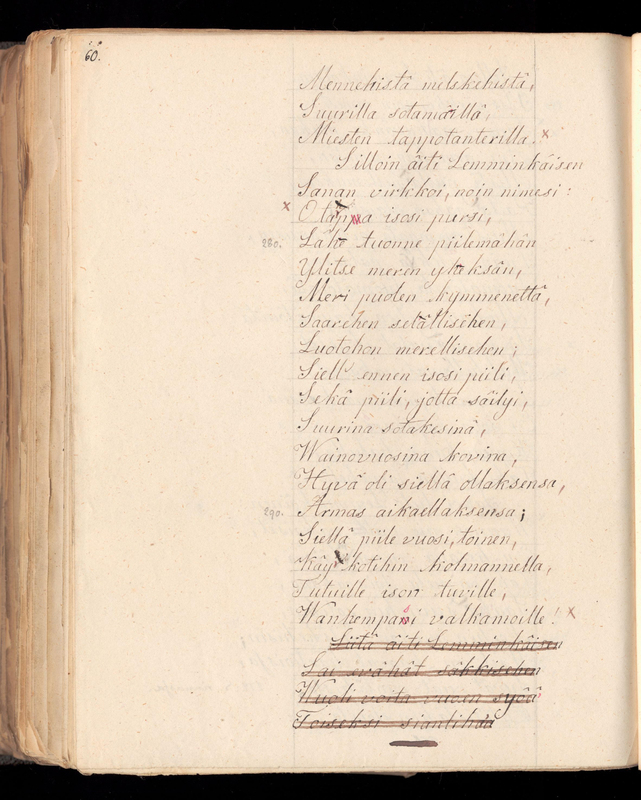 60.
Mennehistä melskehistä,
Suurilla sotamäillä,
Miesten tappotanterilla.
Silloin äiti Lemminkäisen
Sanan virkkoi, noin nimesi:
Otappa isosi pursi,
280. Lähe tuonne piilemähän
Ylitse meren yheksän,
Meri puolen kymmenettä,
Saarehen selällisehen,
Luotohon merellisehen;
Siell' ennen isosi piili,
Sekä piili, jotta säilyi,
Suurina sotakesinä,
Wainovuosina kovina,
Hyvä oli siellä ollaksensa,
290. Armas aikaellaksensa;
Siellä piile vuosi, toinen,
Käy kotihin kolmannella,
Tutuille ison tuville,
Wanhempasi valkamoille!
Siitä äiti Lemminkäisen
Sai evähät säkkisehen
Wuoli voita vuoen syöä
Toiseksi sianlihoa